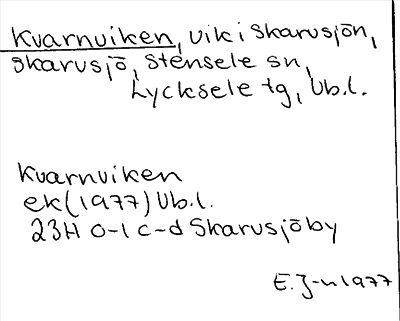 Kvarnviken, vik i Skarvsjön,
Skarvsjö, Stensele sn,
Lycksele tg, Vb.l.
Kvarnviken
ek (1977) Vb.l.
23H 0-1 c-d Skarvsjöby
E.J-n 1977